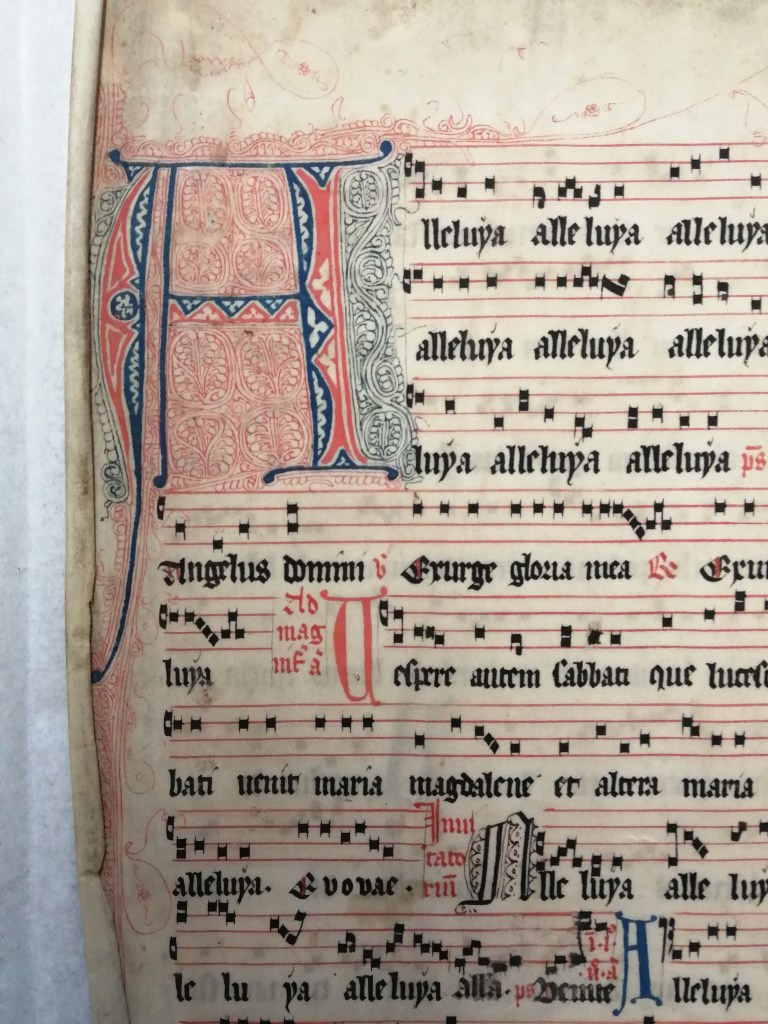 Alleluya alleluya alleluya
alleluya alleluya alleluya
luya alleluya alleluya ps
Angelus domini v Exurge gloria mea Re Exur
luya Ad mag nif a Uespere autem sabbati que lucesc
bati uenit maria magdalene et altera maria
alleluya. Evovae. Inui tato riu Alleluya alleluy
le lu ya alleluya alla. ps Venite i. i a. a Alleluya